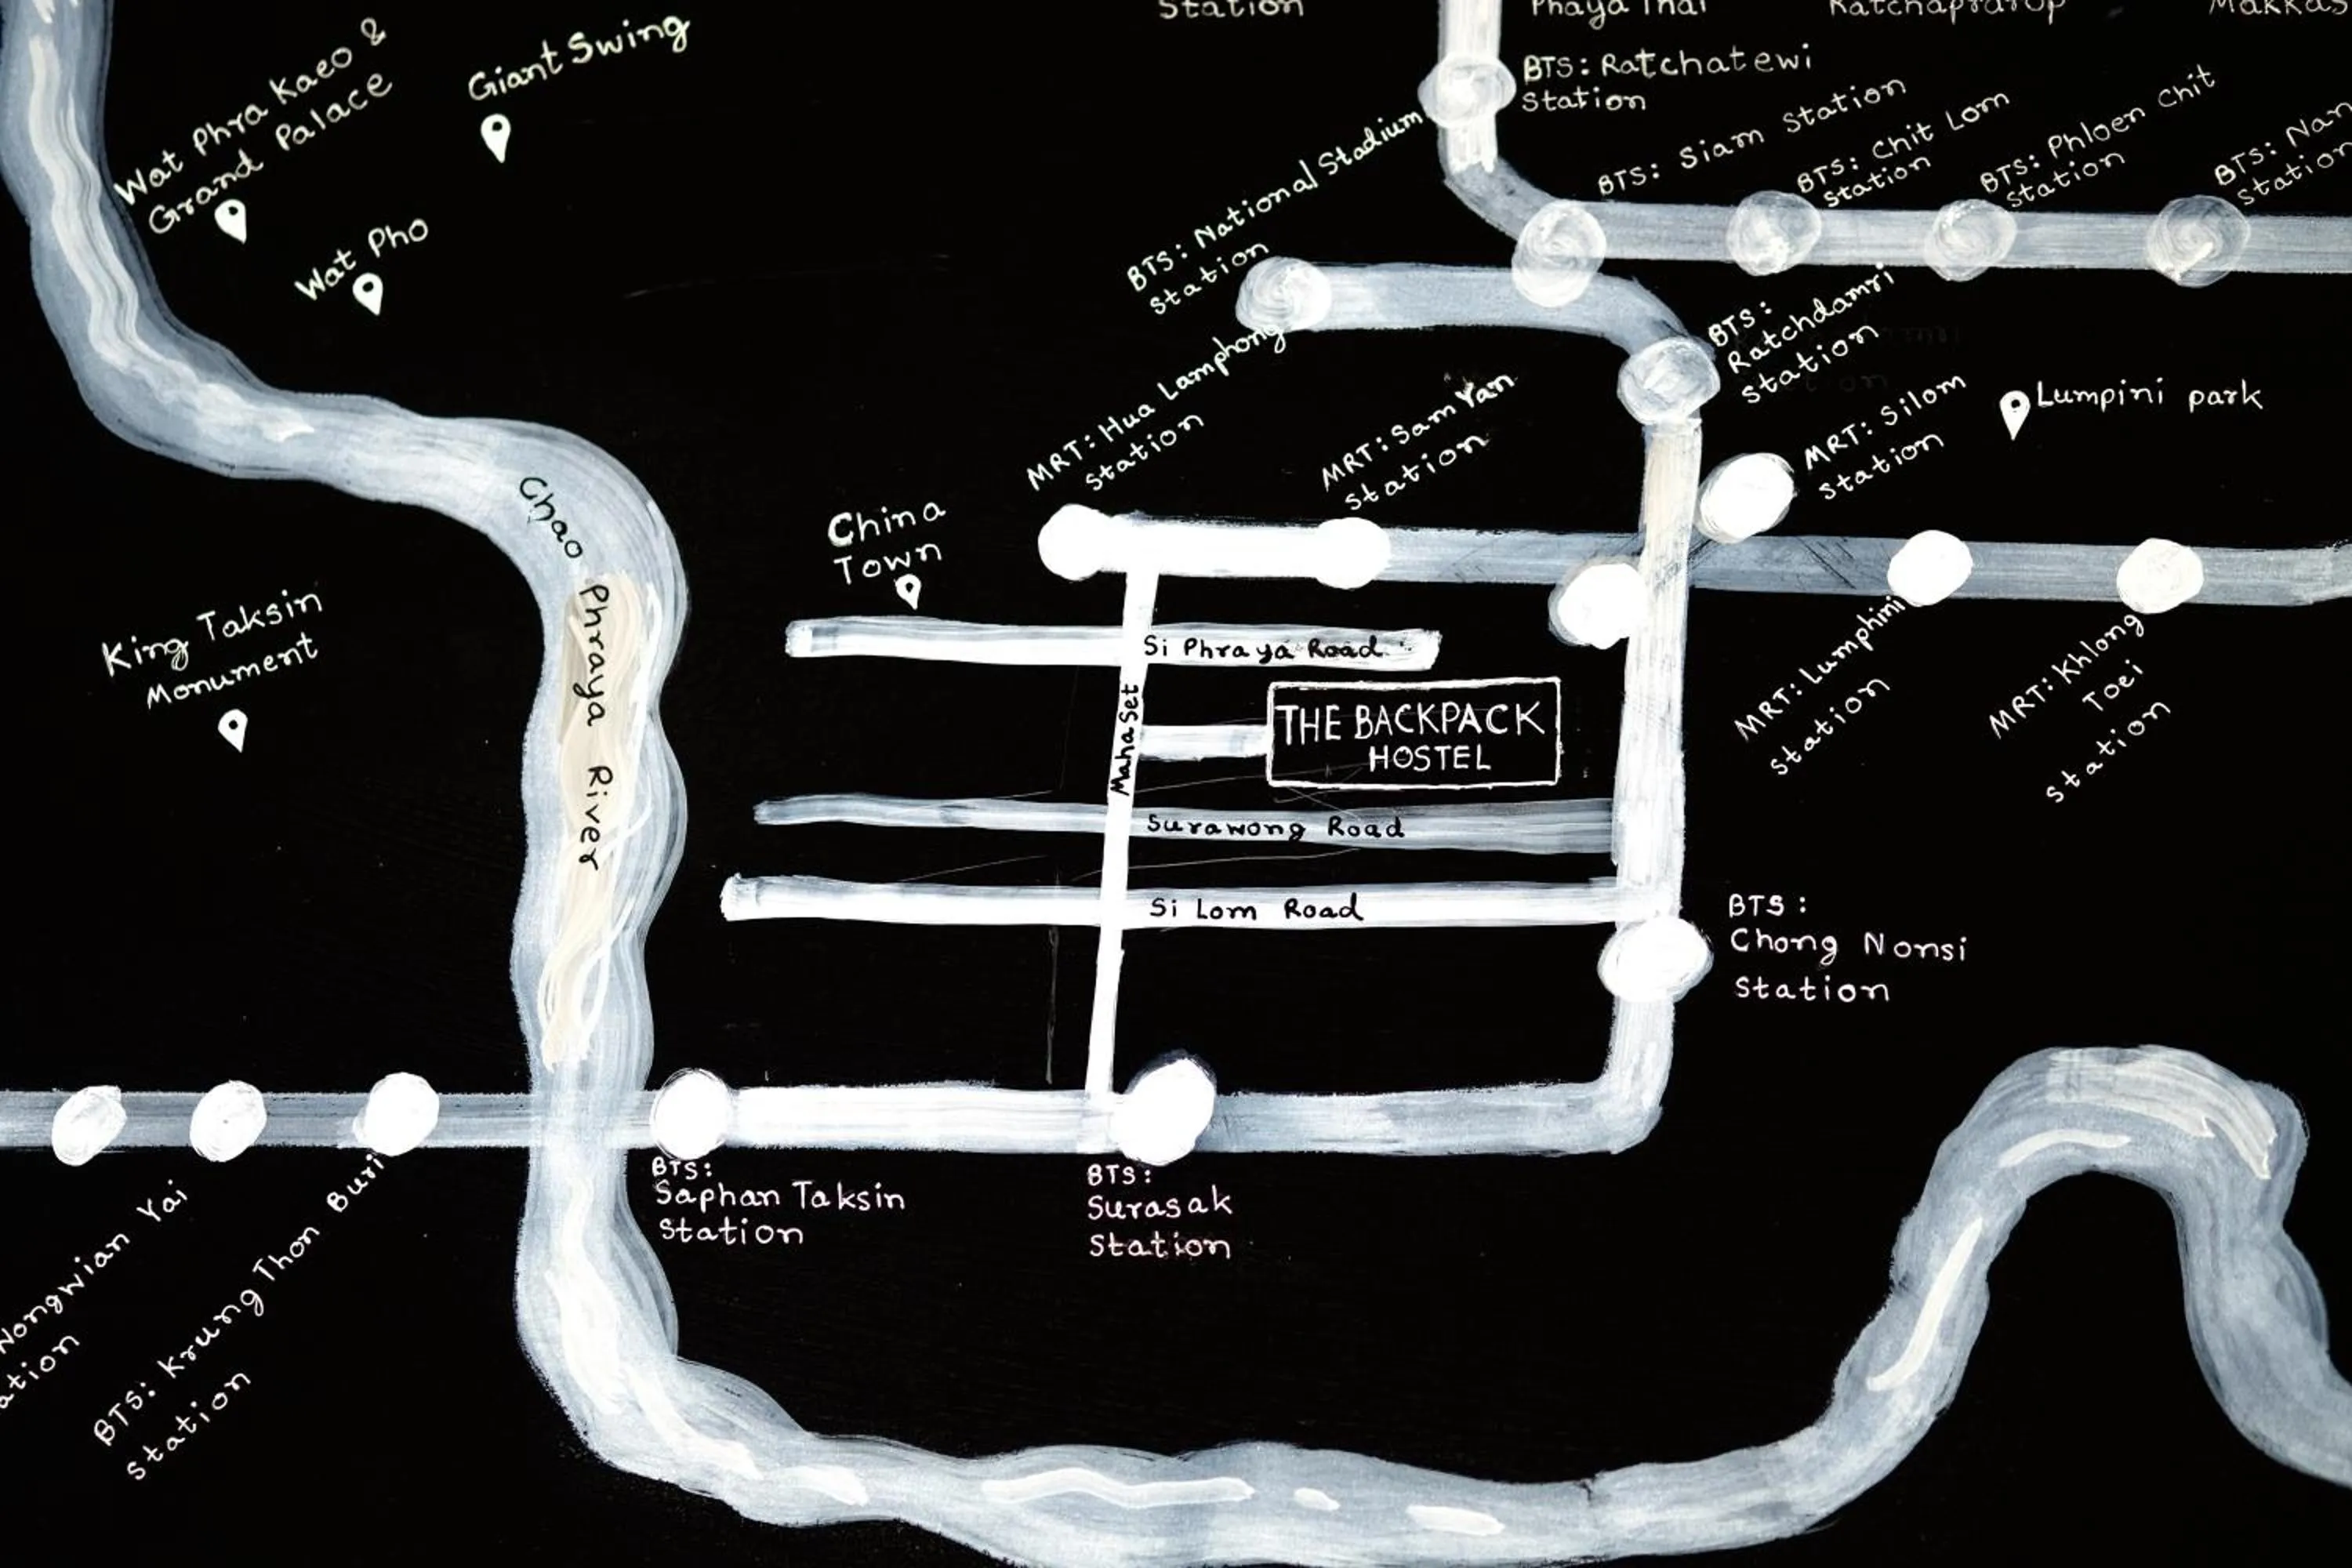 Station
Phaya Thai
Ratchaprarop
BTS: Ratchatewi
Station
Wat Phra Kaeo &
Grand Palace
Giant Swing
Wat Pho
BTS: National Stadium
Station
BTS: Siam Station
BTS: Chit Lom
Station
BTS: Phloen Chit
Station
BTS:
Station
BTS:
Ratchdamri
Station
MRT: Hua Lamphong
Station
MRT: Sam Yan
Station
MRT: Silom
Station
Lumpini park
China
Town
Chao Phraya River
King Taksin
Monument
Si Phraya Road
Maha Set
THE BACKPACK
HOSTEL
MRT: Lumphini
Station
MRT: Khlong
Toei
Station
Surawong Road
Si Lom Road
BTS:
Chong Nonsi
Station
BTS:
Saphan Taksin
Station
BTS:
Surasak
Station
Wongwian Yai
BTS: Krung Thon Buri
Station